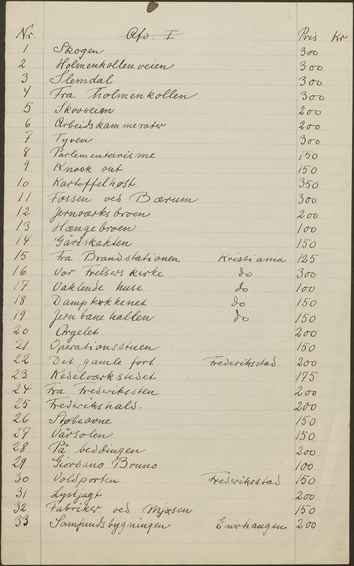 Nr. Afd. I Pris Kr
1 Skogen 300
2 Holmenkollenveien 300
3 Slemdal 300
4 Fra Holmenkollen 300
5 Skovveien 200
6 Arbeidskammerater 200
7 Tyven 300
8 Parlementarisme 150
9 Knock out 150
10 Kartoffelhøst 350
11 Fossen ved Bærum 300
12 Jernværksbroen 200
13 Hængebroen 100
14 Gårdskakten 150
15 Fra Brandstationen Kristiania 125
16 Vor Frelsers kirke do 300
17 Vaklende huse do 100
18 Dampkøkkenet do 150
19 Jernbanehallen do 150
20 Orgelet 200
21 Operationsstuen 150
22 Det gamle fort Frederikstad 200
23 Kedelværkstedet 175
24 Fra Frederiksten 200
25 Frederikshald. 200
26 Støbeovne 150
27 Vårsolen 150
28 På beddingen 200
29 Giordano Bruno 100
30 Voldporten Frederikstad 150
31 Lystjagt 200
32 Fabriker ved Mjøsen 150
33 Samfundsbygningen Enerhaugen 200